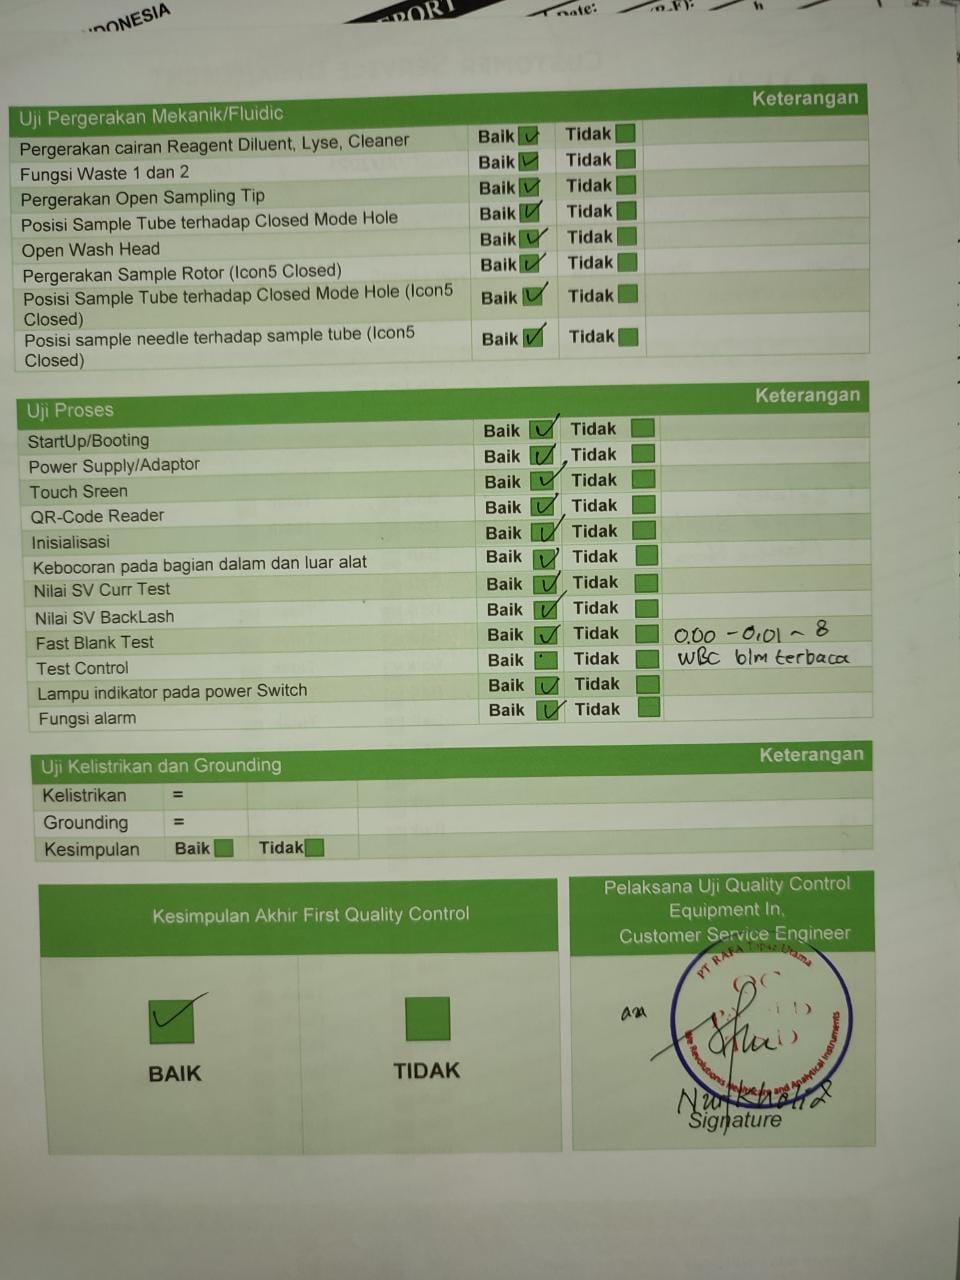 DONESIA
PORT
Date:
Uji Pergerakan Mekanik/Fluidic Keterangan
Pergerakan cairan Reagent Diluent, Lyse, Cleaner Baik ✓ Tidak
Fungsi Waste 1 dan 2 Baik ✓ Tidak
Pergerakan Open Sampling Tip Baik ✓ Tidak
Posisi Sample Tube terhadap Closed Mode Hole Baik ✓ Tidak
Open Wash Head Baik ✓ Tidak
Pergerakan Sample Rotor (Icon5 Closed) Baik ✓ Tidak
Posisi Sample Tube terhadap Closed Mode Hole (Icon5 Baik ✓ Tidak
Closed)
Posisi sample needle terhadap sample tube (Icon5 Baik ✓ Tidak
Closed)
Uji Proses Keterangan
StartUp/Booting Baik ✓ Tidak
Power Supply/Adaptor Baik ✓ Tidak
Touch Sreen Baik ✓ Tidak
QR-Code Reader Baik ✓ Tidak
Inisialisasi Baik ✓ Tidak
Kebocoran pada bagian dalam dan luar alat Baik ✓ Tidak
Nilai SV Curr Test Baik ✓ Tidak
Nilai SV BackLash Baik ✓ Tidak
Fast Blank Test Baik ✓ Tidak 0.00 - 0,01 ~ 8
Test Control Baik Tidak WBC blm terbaca
Lampu indikator pada power Switch Baik ✓ Tidak
Fungsi alarm Baik ✓ Tidak
Uji Kelistrikan dan Grounding Keterangan
Kelistrikan =
Grounding =
Kesimpulan Baik Tidak
Kesimpulan Akhir First Quality Control
✓
BAIK
TIDAK
Pelaksana Uji Quality Control
Equipment In,
Customer Service Engineer
PT RAFA Utama
QC
and Analytical Instruments
Signature